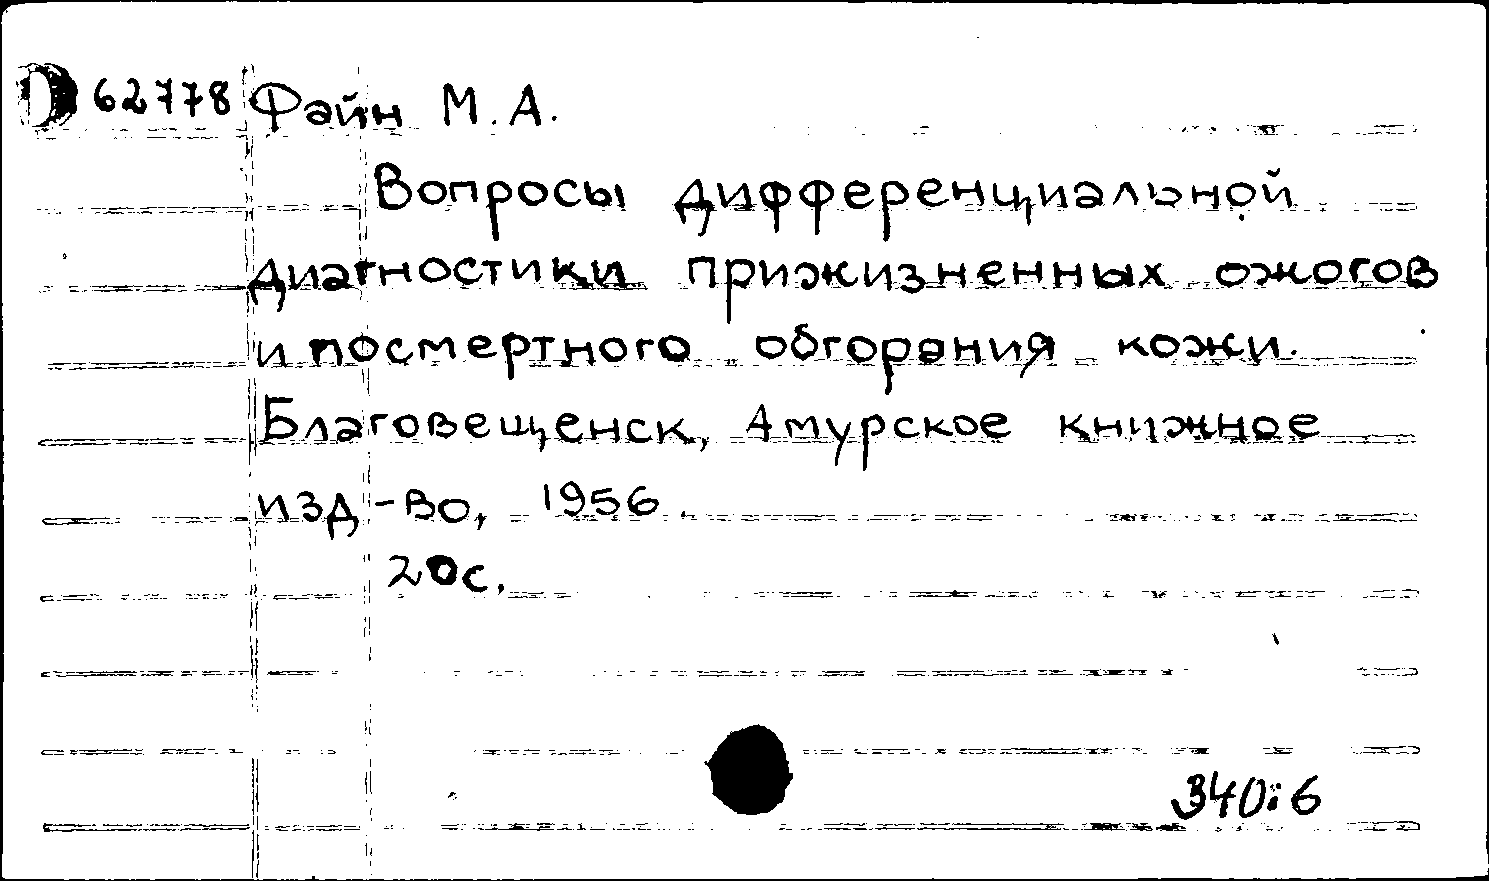 D 62778 Файн М.А.
Вопросы дифференциальной
диагностики прижизненных ожогов
и посмертного обгорания кожи.
Благовещенск, Амурское книжное
изд-во, 1956.
20с.
340:6